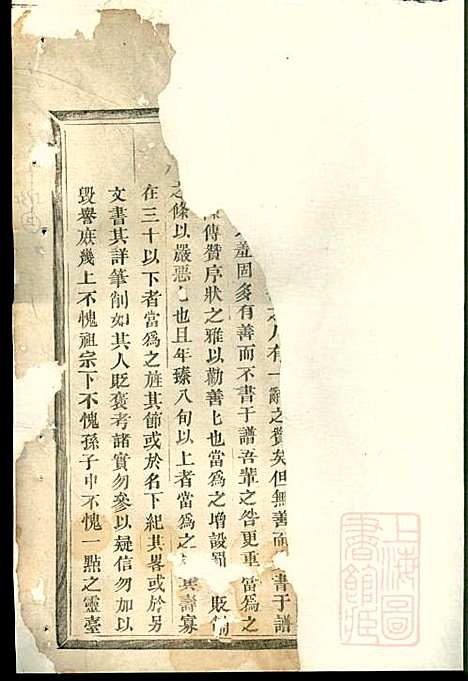 之人有一辭之贊矣但無善而書于譜
羞固多有善而不書于譜吾輩之咎更重當為之
傳贊序狀之雅以勸善也當為之增設
之條以嚴惡也且年臻八旬以上者當為之其壽寡
在三十以下者當爲之旌其節或於名下紀其畧或於另
文書其詳筆削如其人貶褒考諸實勿參以疑信勿加以
毀譽庶幾上不愧祖宗下不愧孫子中不愧一點之靈臺
上海圖書館藏